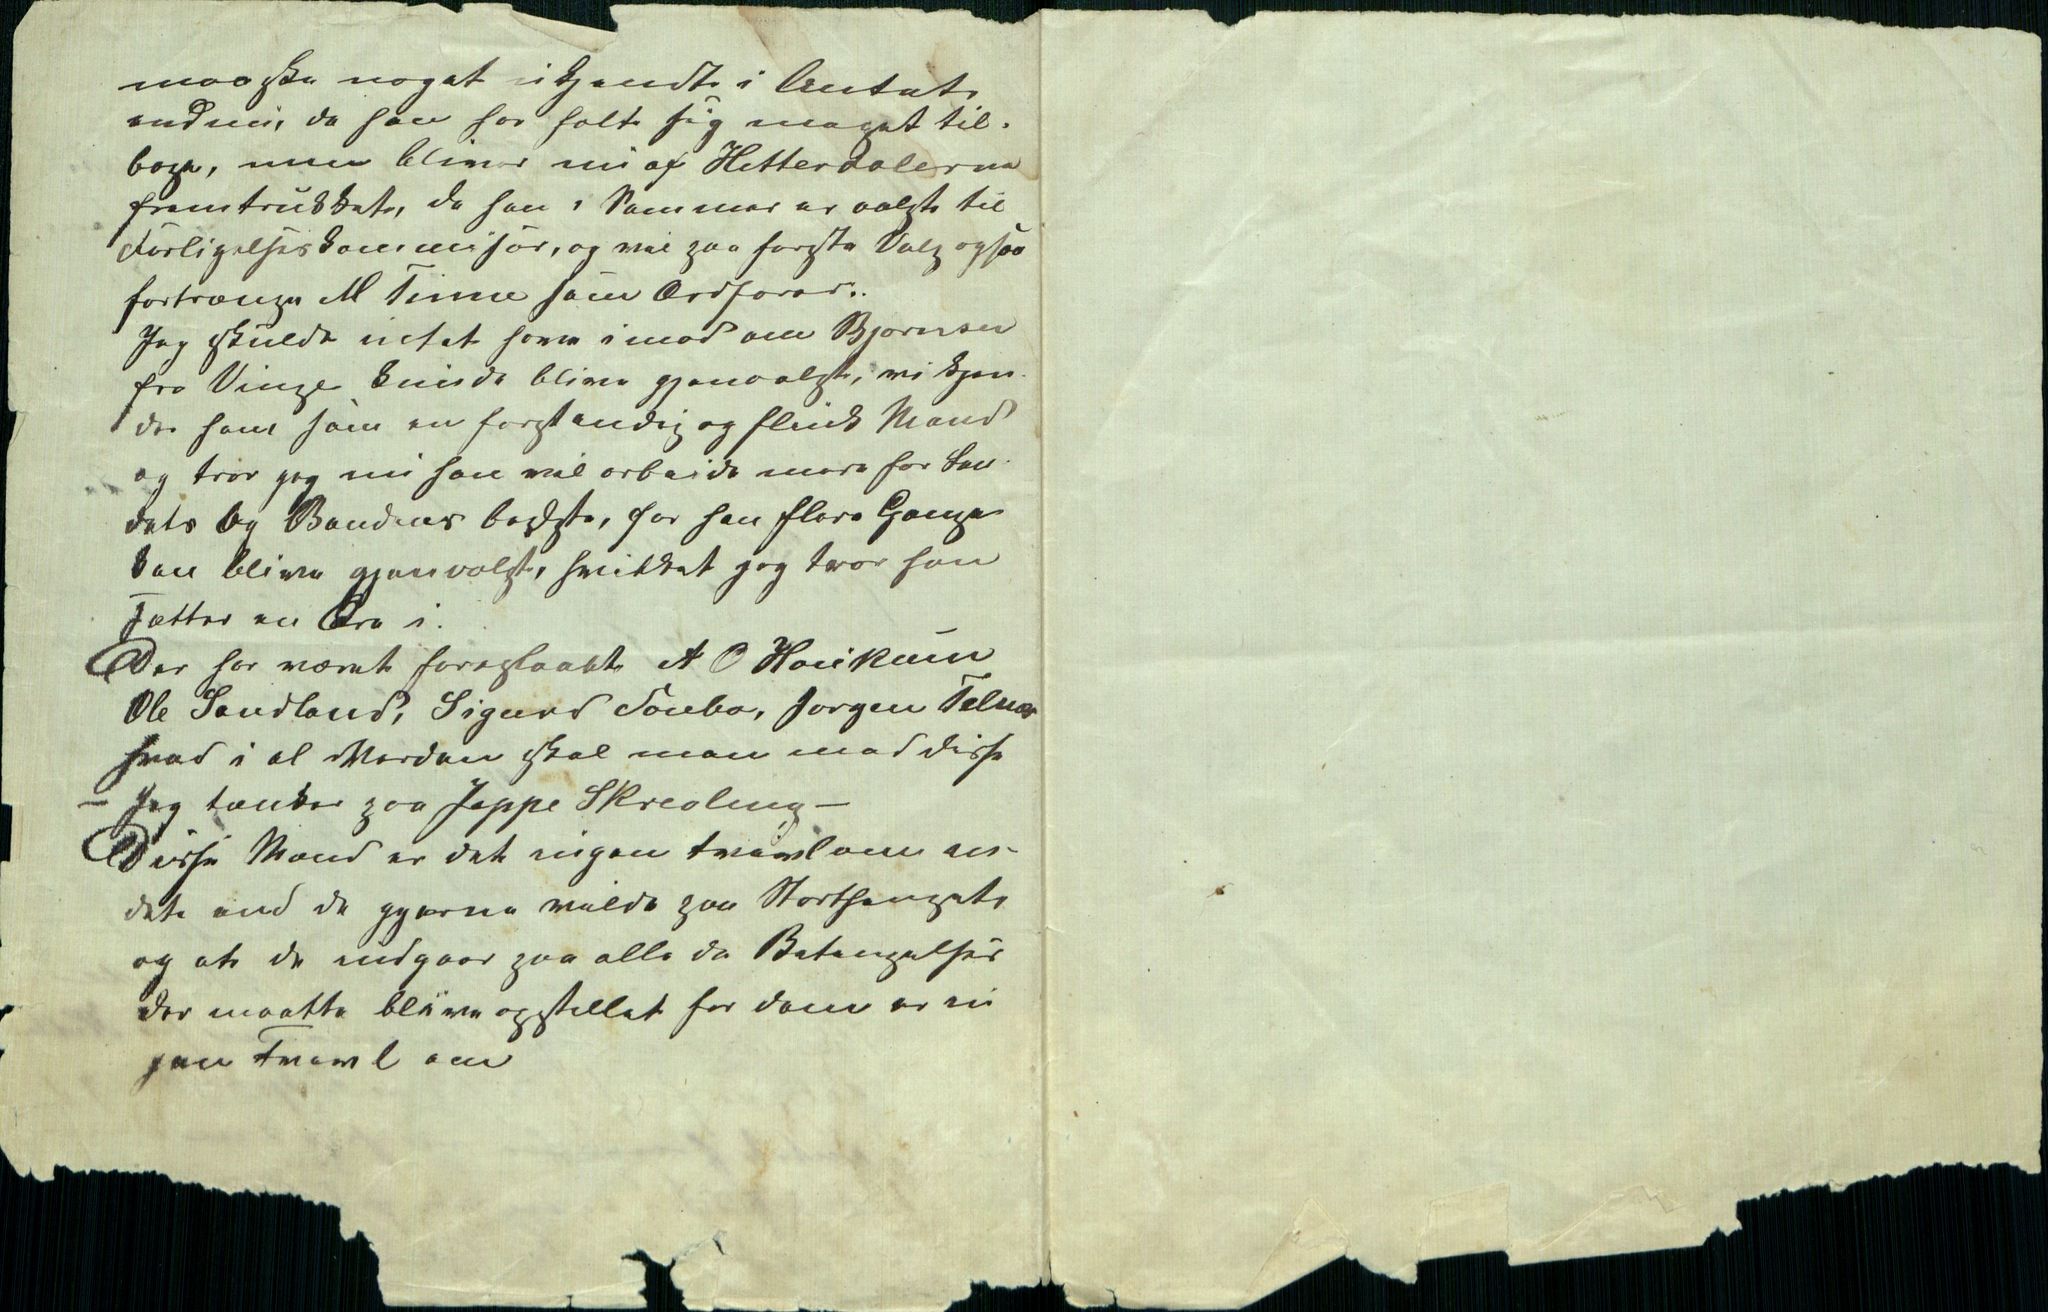 maaske noget ukjendt i Amtet
endnu, da han har holt sig meget til-
bage, men bliver nu af Hitterdølerne
fremtrukket, da han i Sommer er valgt til
Forligelseskommisær, og vil paa første Valg ogsaa
fortrænge M Tinne som Ordfører.
Jeg skulde intet have imod om Bjørnsen
fra Vinge kunde blive gjenvalgt, vi kjen-
der ham som en forstandig og flink Mand
og tror jeg nu han vil arbeide mere for Lan-
dets og Bondens bedste, før han flere Gange
kan blive gjenvalgt, hvilket jeg tror han
sætter en Ære i.
Der har været foreslaaet A O Haukum
Ole Sandland, Sigurd Jonbø, Jørgen Telnæs
hvad i al Verden skal man med disse
– Jeg tænker paa Jeppe Skreoling –
Disse Mænd er det ingen tvivl om an-
det end de gjerne vilde paa Storthinget
og at de indgaar paa alle de Betingelser
der maatte blive opstillet for dem er in
gen Tvivl om